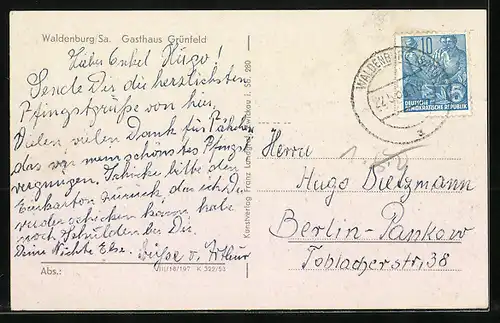 Waldenburg/Sa. Gasthaus Grünfeld
Lieber Enkel Hugo!
Sende Dir die herzlichsten
Pfingstgrüße von hier.
Vielen, vielen Dank für Päckchen
das war mein schönstes Pfingst-
vergnügen. Schicke bitte den
Eierkarton zurück, das ich Dir
wieder schicken kann, habe
noch Schulden bei Dir
Deine Nichte Else. Luise u. Arthur
Abs.:
III/18/197 K 322/53
Kunstverlag Franz Landgraf, Zwickau i. Sa. 280
WALDENBURG (SACHS)
10
5
DEUTSCHE
DEMOKRATISCHE REPUBLIK
Herrn
Hugo Dietzmann
Berlin-Pankow
Toblacherstr, 38